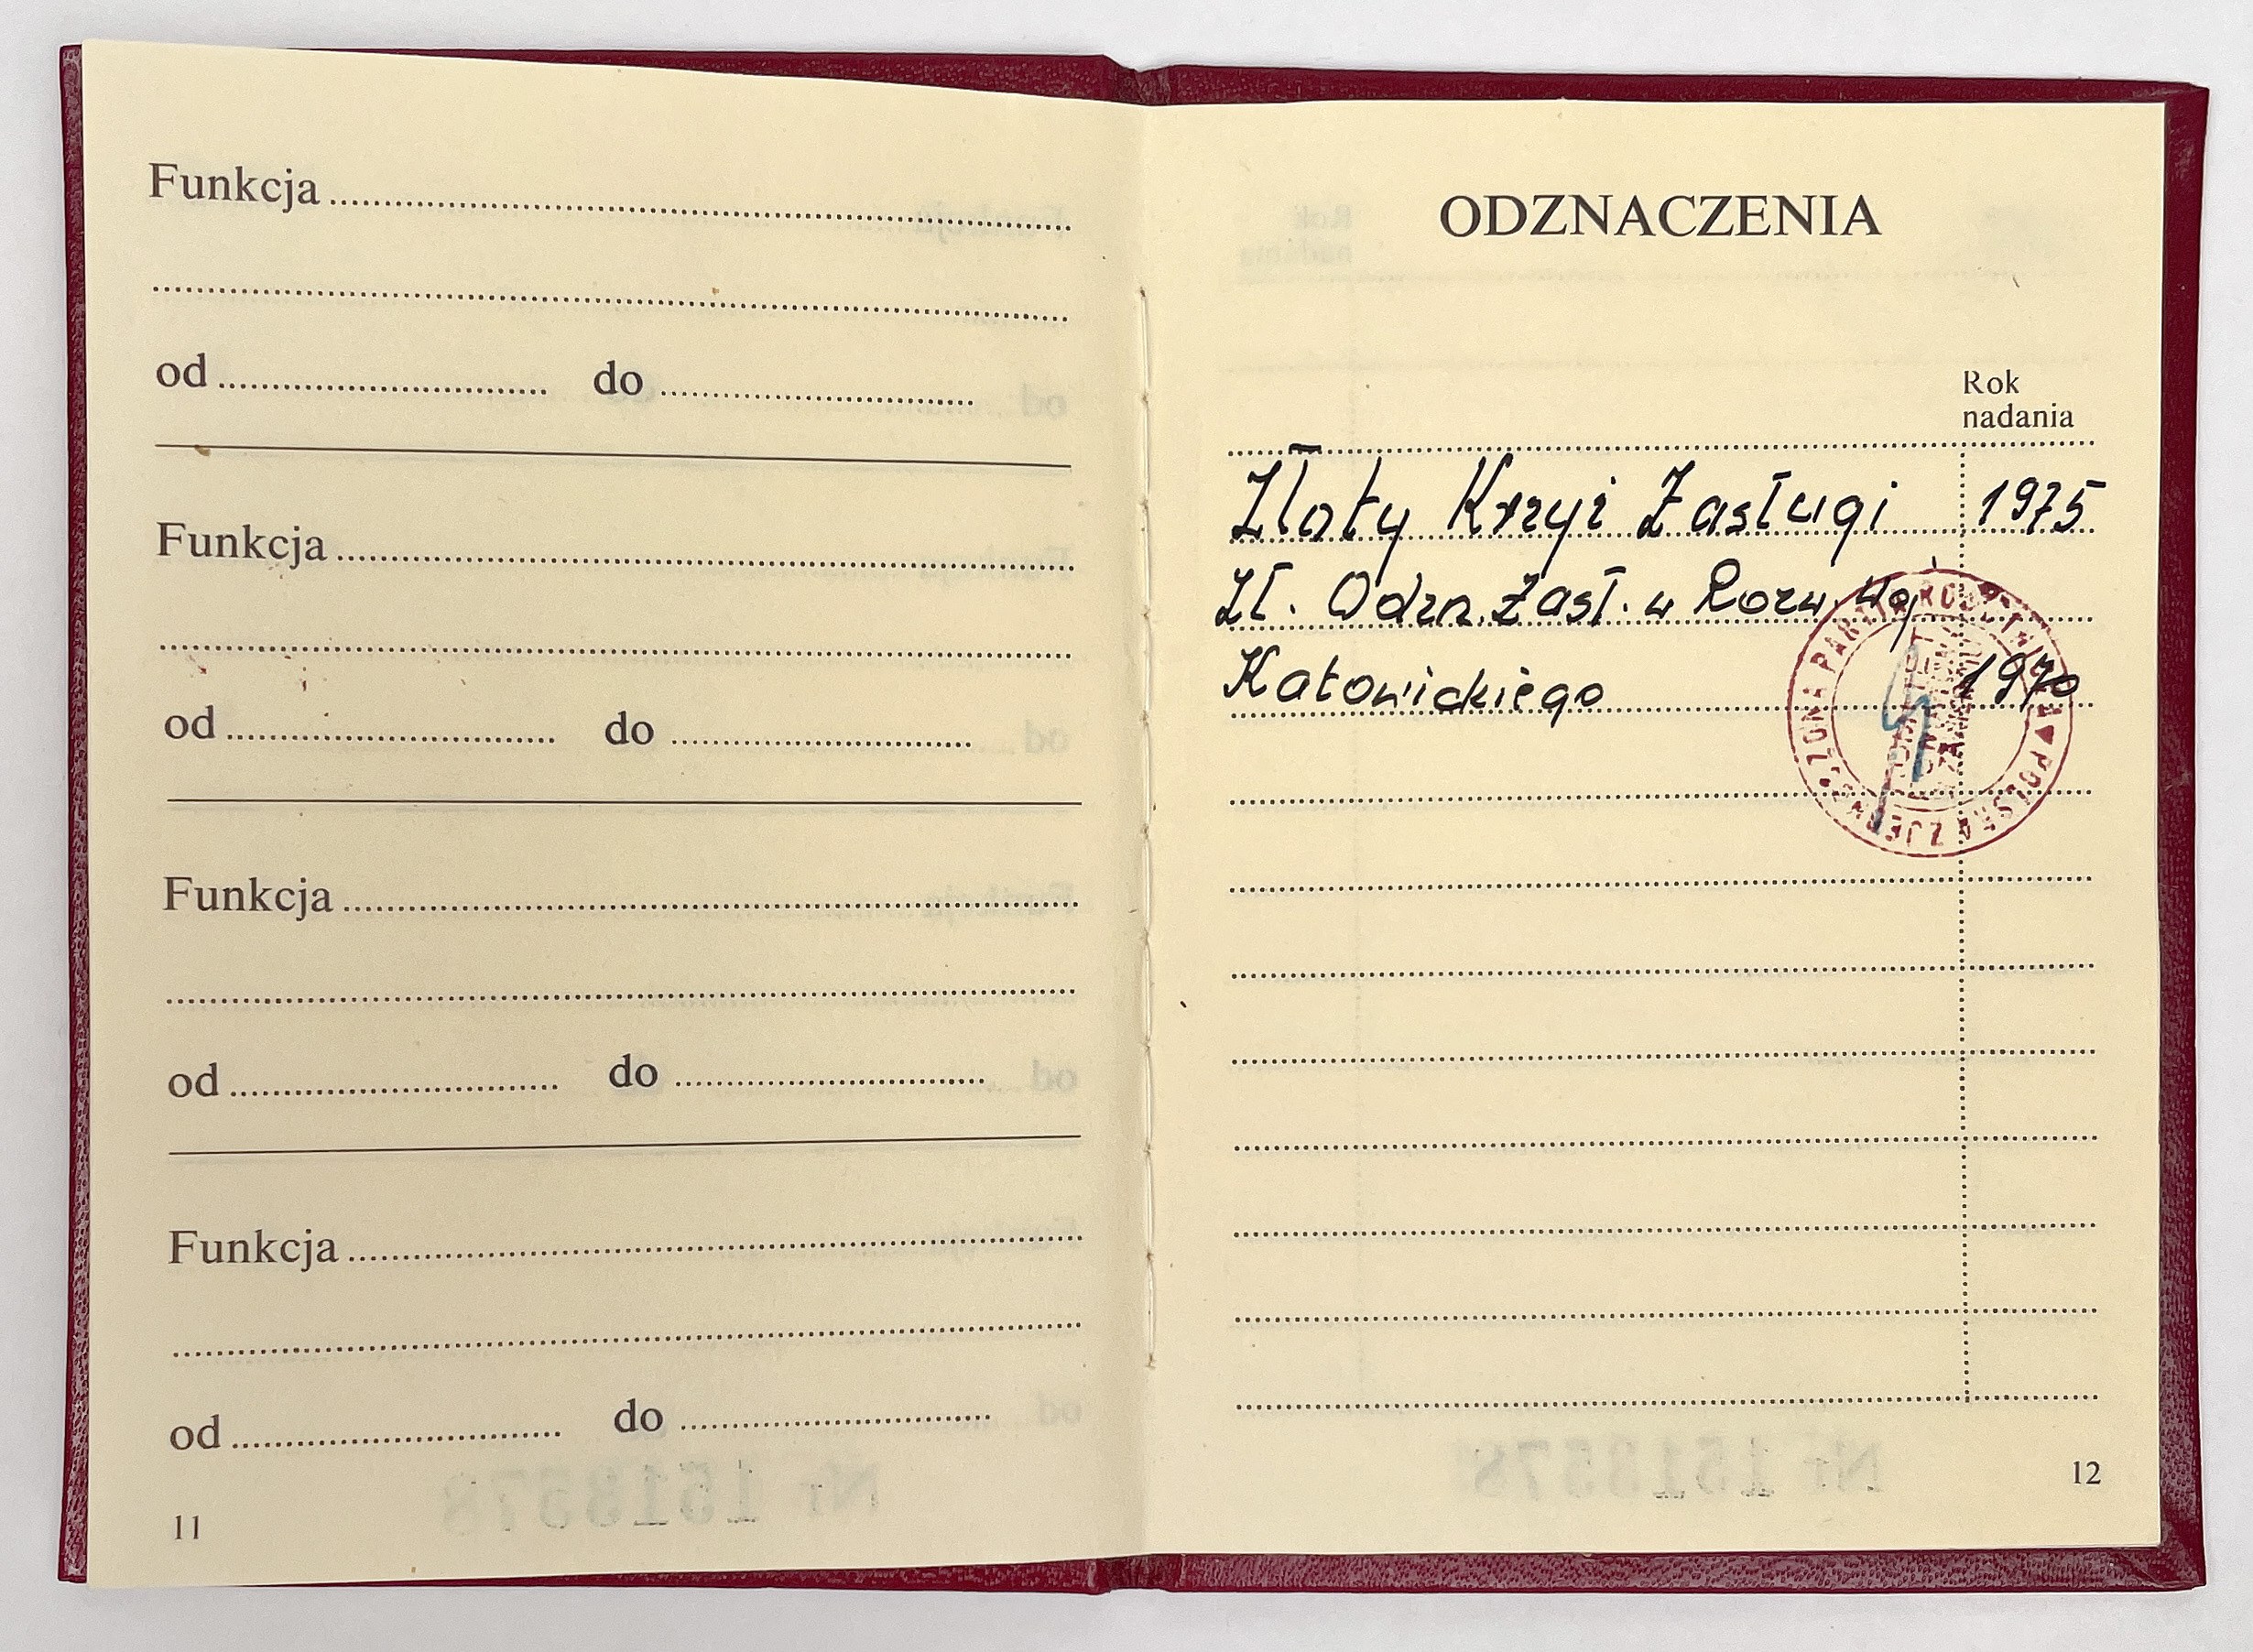 Funkcja
od do
Funkcja
od do
Funkcja
od do
Funkcja
od do
11
ODZNACZENIA
Rok
nadania
Złoty Krzyż Zasługi 1975
Zł. Odzn. Zasł. w Rozw. Woj.
Katowickiego 1970
POLSKA ZJEDNOCZONA PARTIA ROBOTNICZA
Nr 1518578
Nr 1518578
12